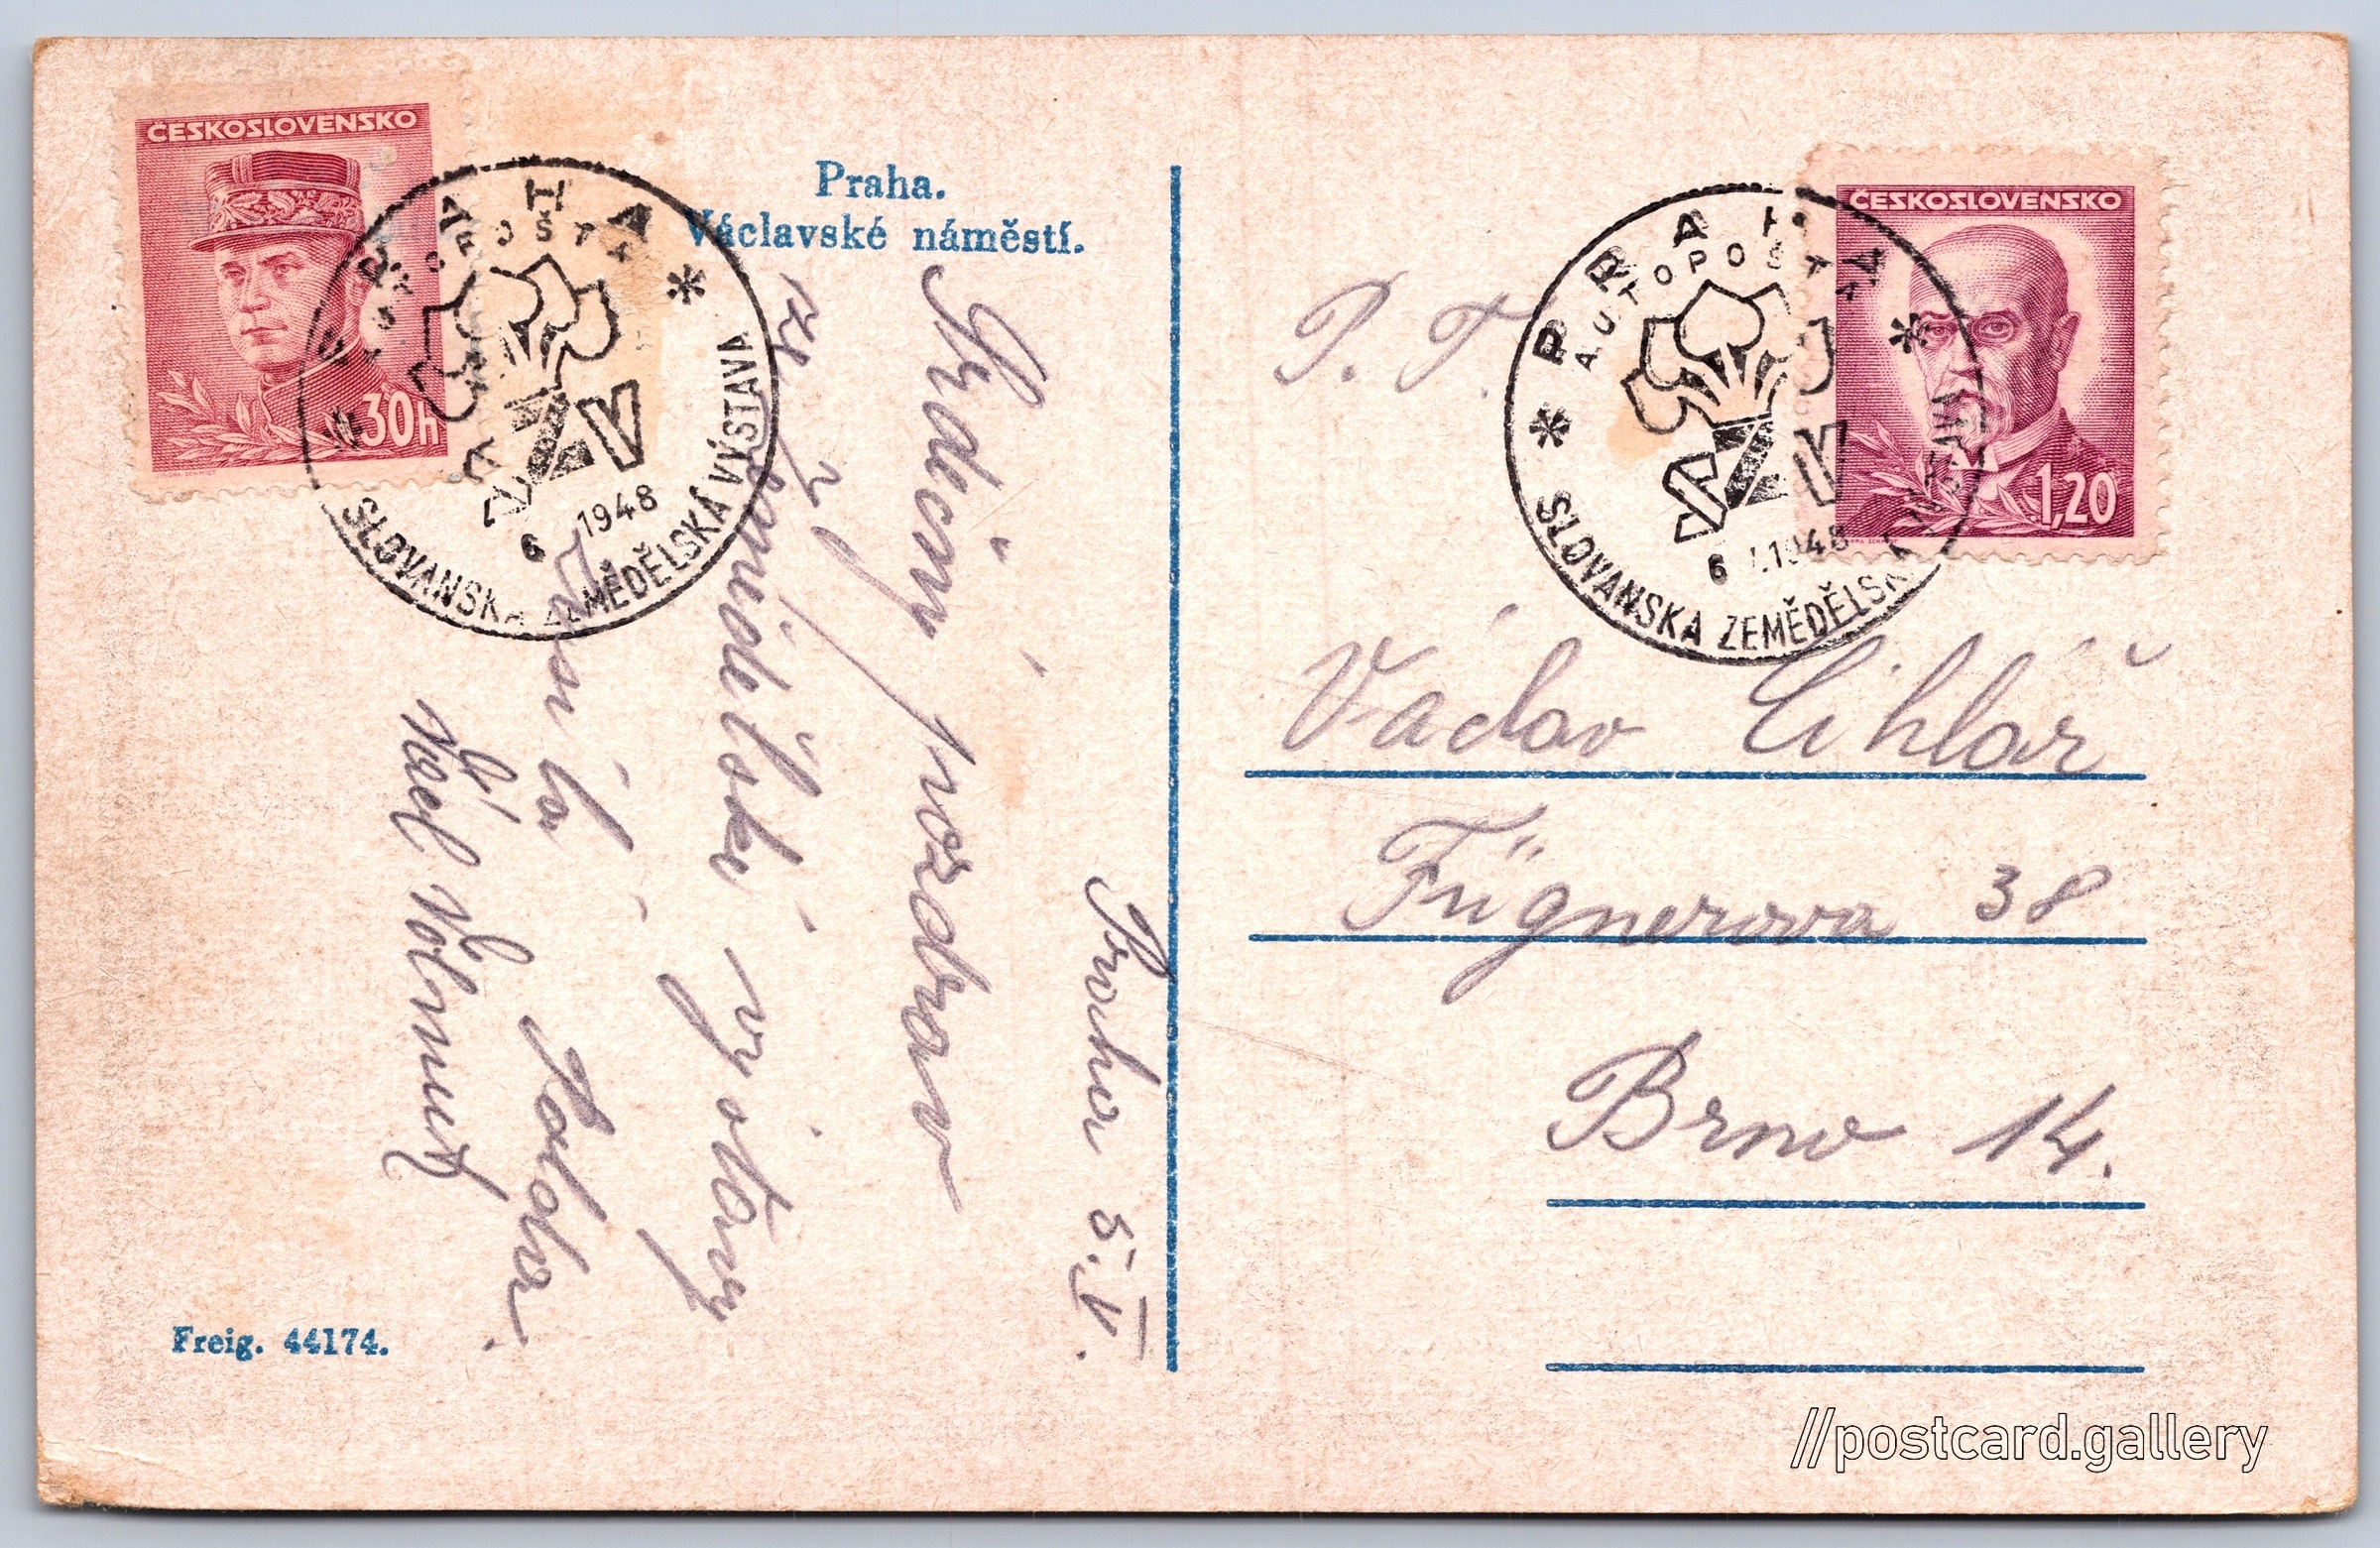 ČESKOSLOVENSKO
30h
PRAHA
AUTOPOŠTA
SZV
6 1948
SLOVANSKÁ ZEMĚDĚLSKÁ VÝSTAVA
Praha.
Václavské náměstí.
Praha 5. V.
Srdečný pozdrav
ze zemědělské výstavy
Freig. 44174.
ČESKOSLOVENSKO
1,20
PRAHA
AUTOPOŠTA
SZV
6 1948
SLOVANSKÁ ZEMĚDĚLSKÁ VÝSTAVA
P. T.
Václav Cihlář
Fügnerova 38
Brno 14.
//postcard.gallery